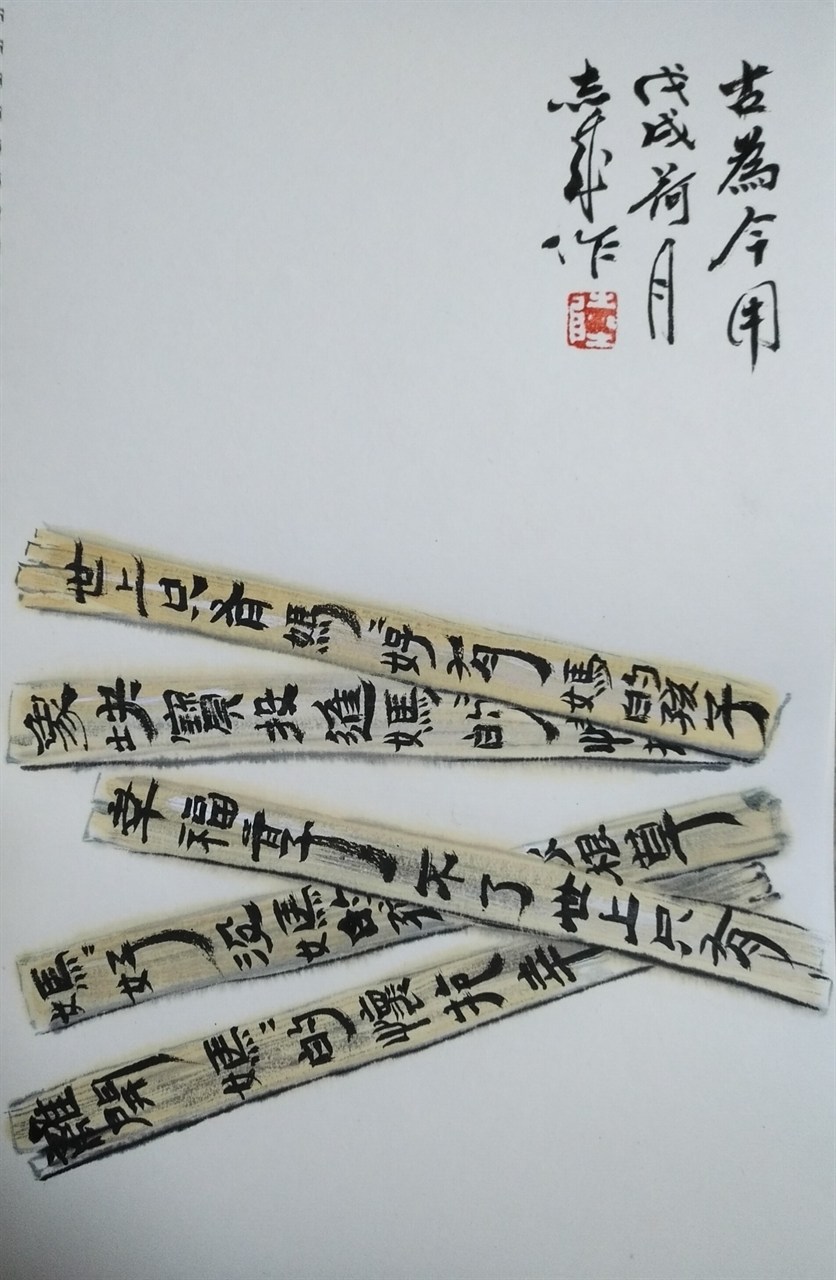 古為今用
戊戌荷月
志 作
世上只有媽〻好有媽的孩子
象块寶投進媽〻的懷抱
幸福享不了世上只有
媽〻好沒媽的孩 根草
離開媽〻的懷抱幸